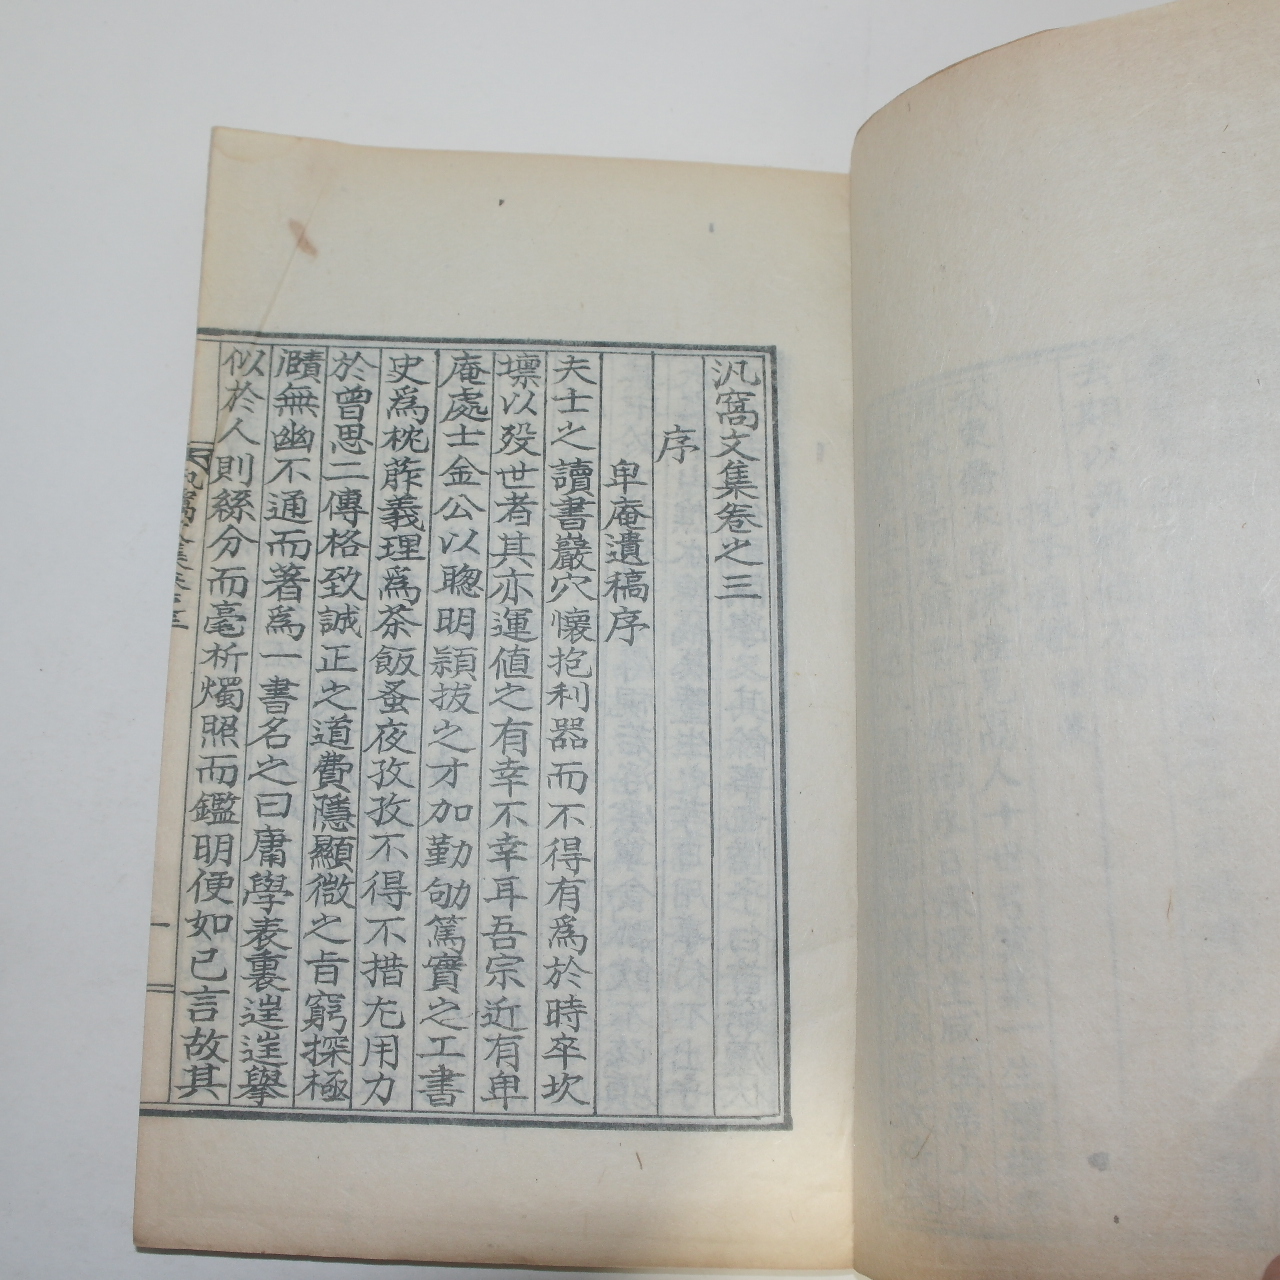 汎窩文集卷之三
序
卑庵遺稿序
夫士之讀書巖穴懷抱利器而不得有爲於時卒坎
壈以歿世者其亦運値之有幸不幸耳吾宗近有卑
庵處士金公以聰明穎拔之才加勤劬篤實之工書
史爲枕葄義理爲茶飯蚤夜孜孜不得不措尤用力
於曾思二傳格致誠正之道費隱顯微之旨窮探極
賾無幽不通而著爲一書名之曰庸學表裏逹逹擧
似於人則絲分而毫析燭照而鑑明便如已言故其
汎窩文集卷之三
一